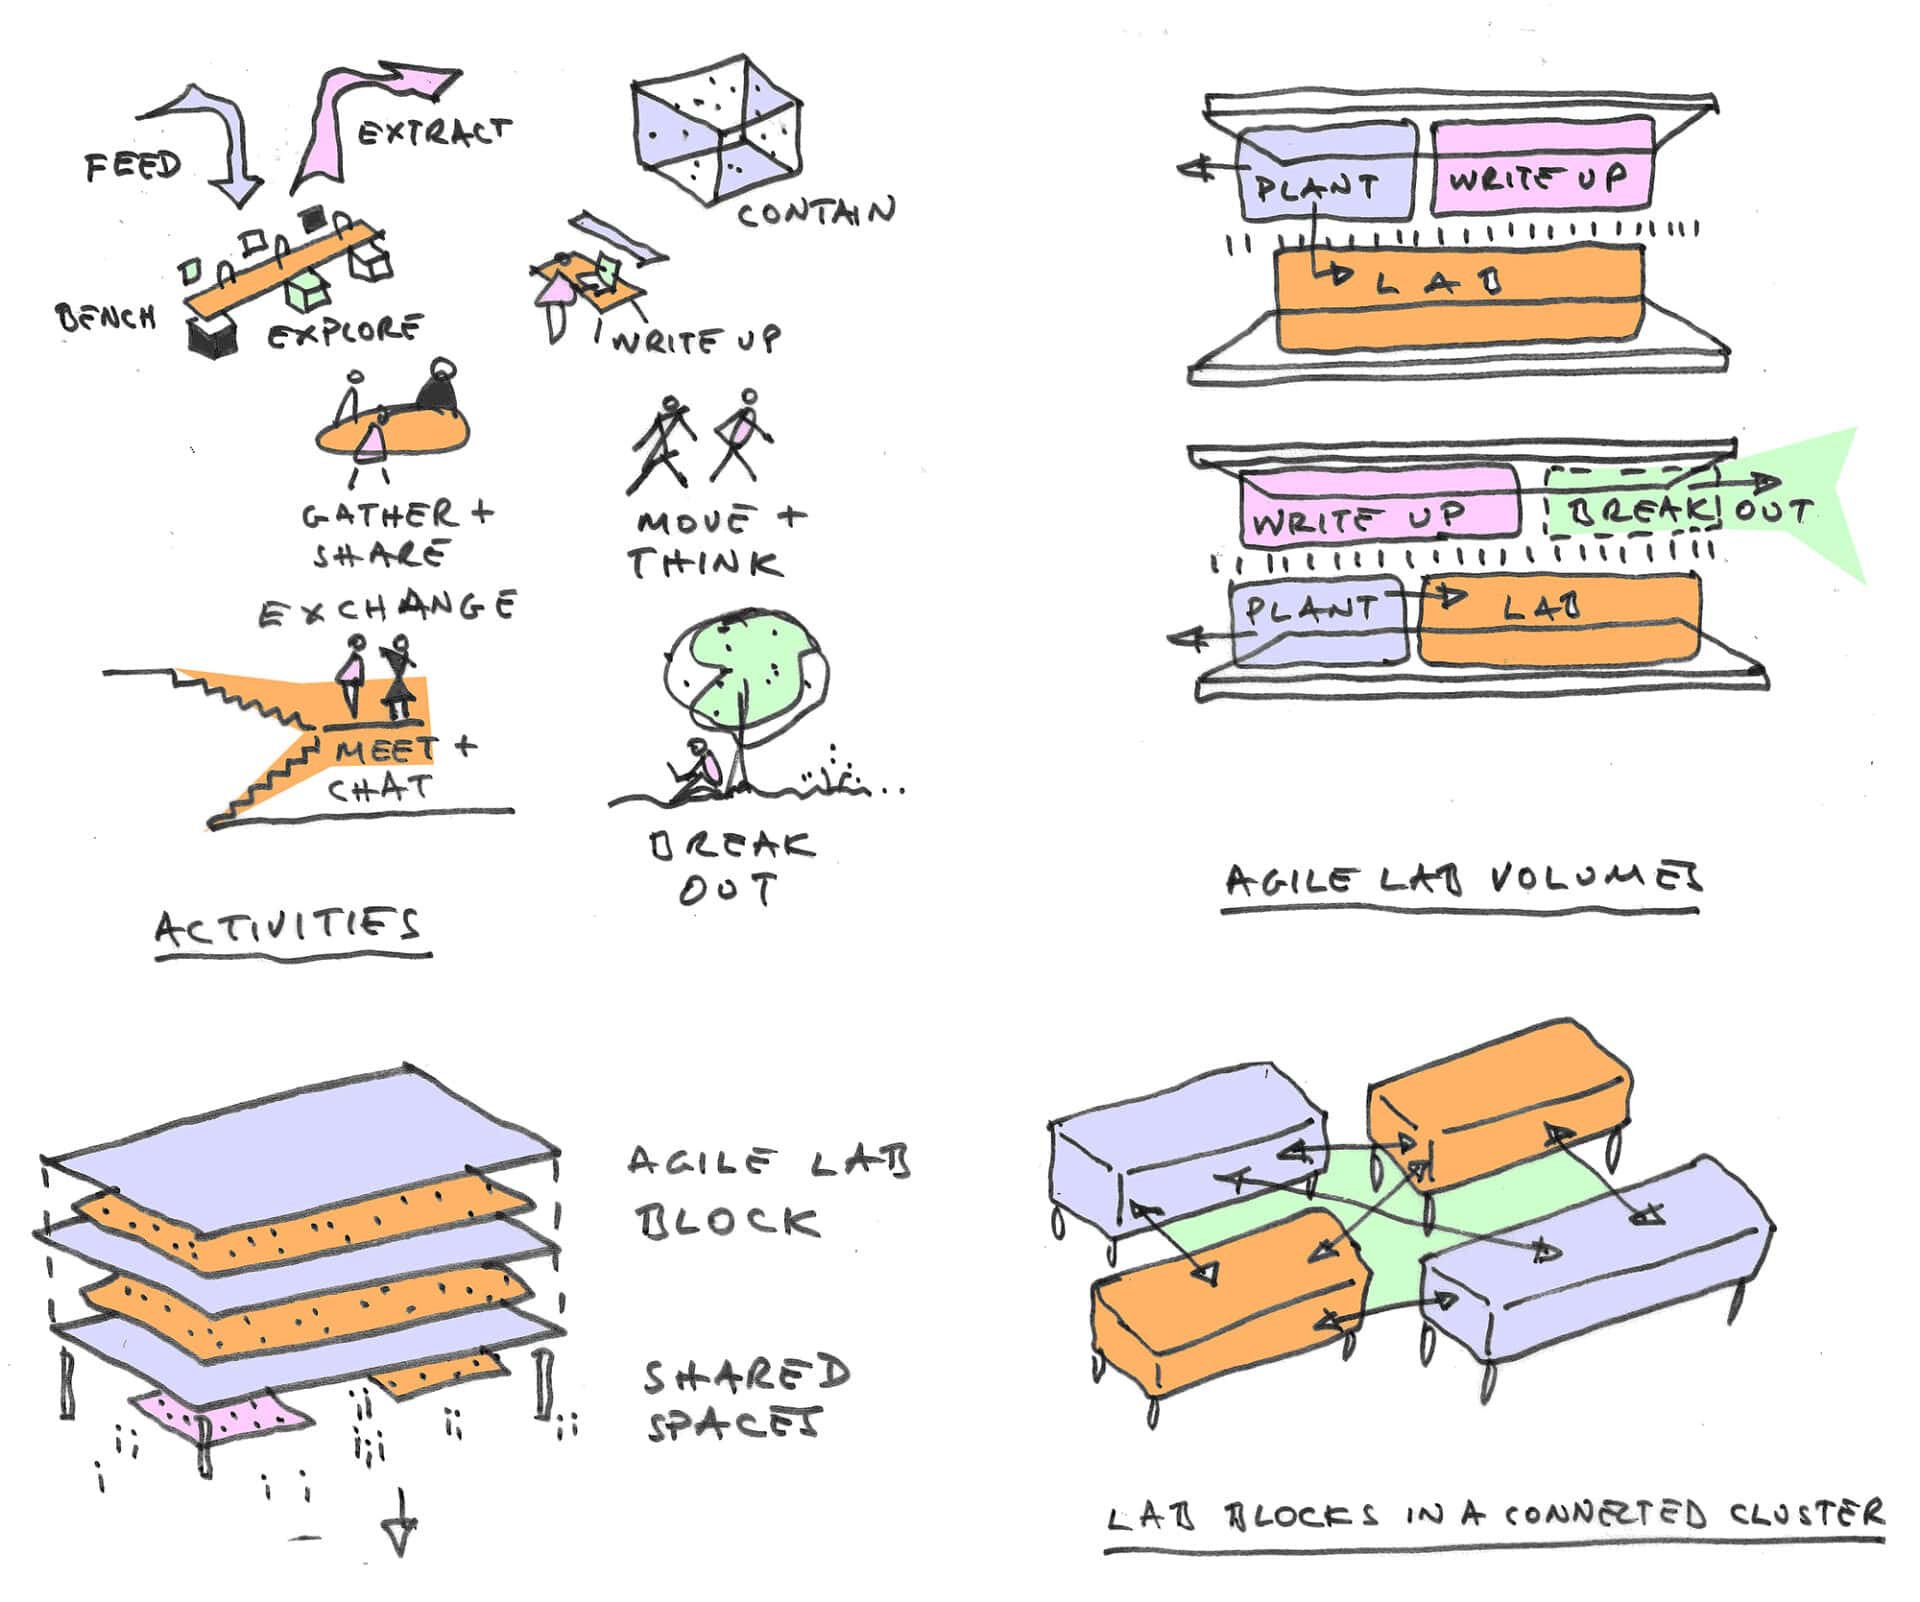 FEED
EXTRACT
CONTAIN
BENCH
EXPLORE
WRITE UP
GATHER +
SHARE
MOVE +
THINK
EXCHANGE
MEET +
CHAT
BREAK
OUT
ACTIVITIES
PLANT
WRITE UP
LAB
WRITE UP
BREAK OUT
PLANT
LAB
AGILE LAB VOLUMES
AGILE LAB
BLOCK
SHARED
SPACES
LAB BLOCKS IN A CONNECTED CLUSTER